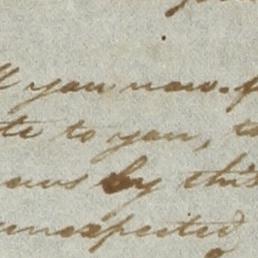 you now. f
te to you, t
by this
unexpected